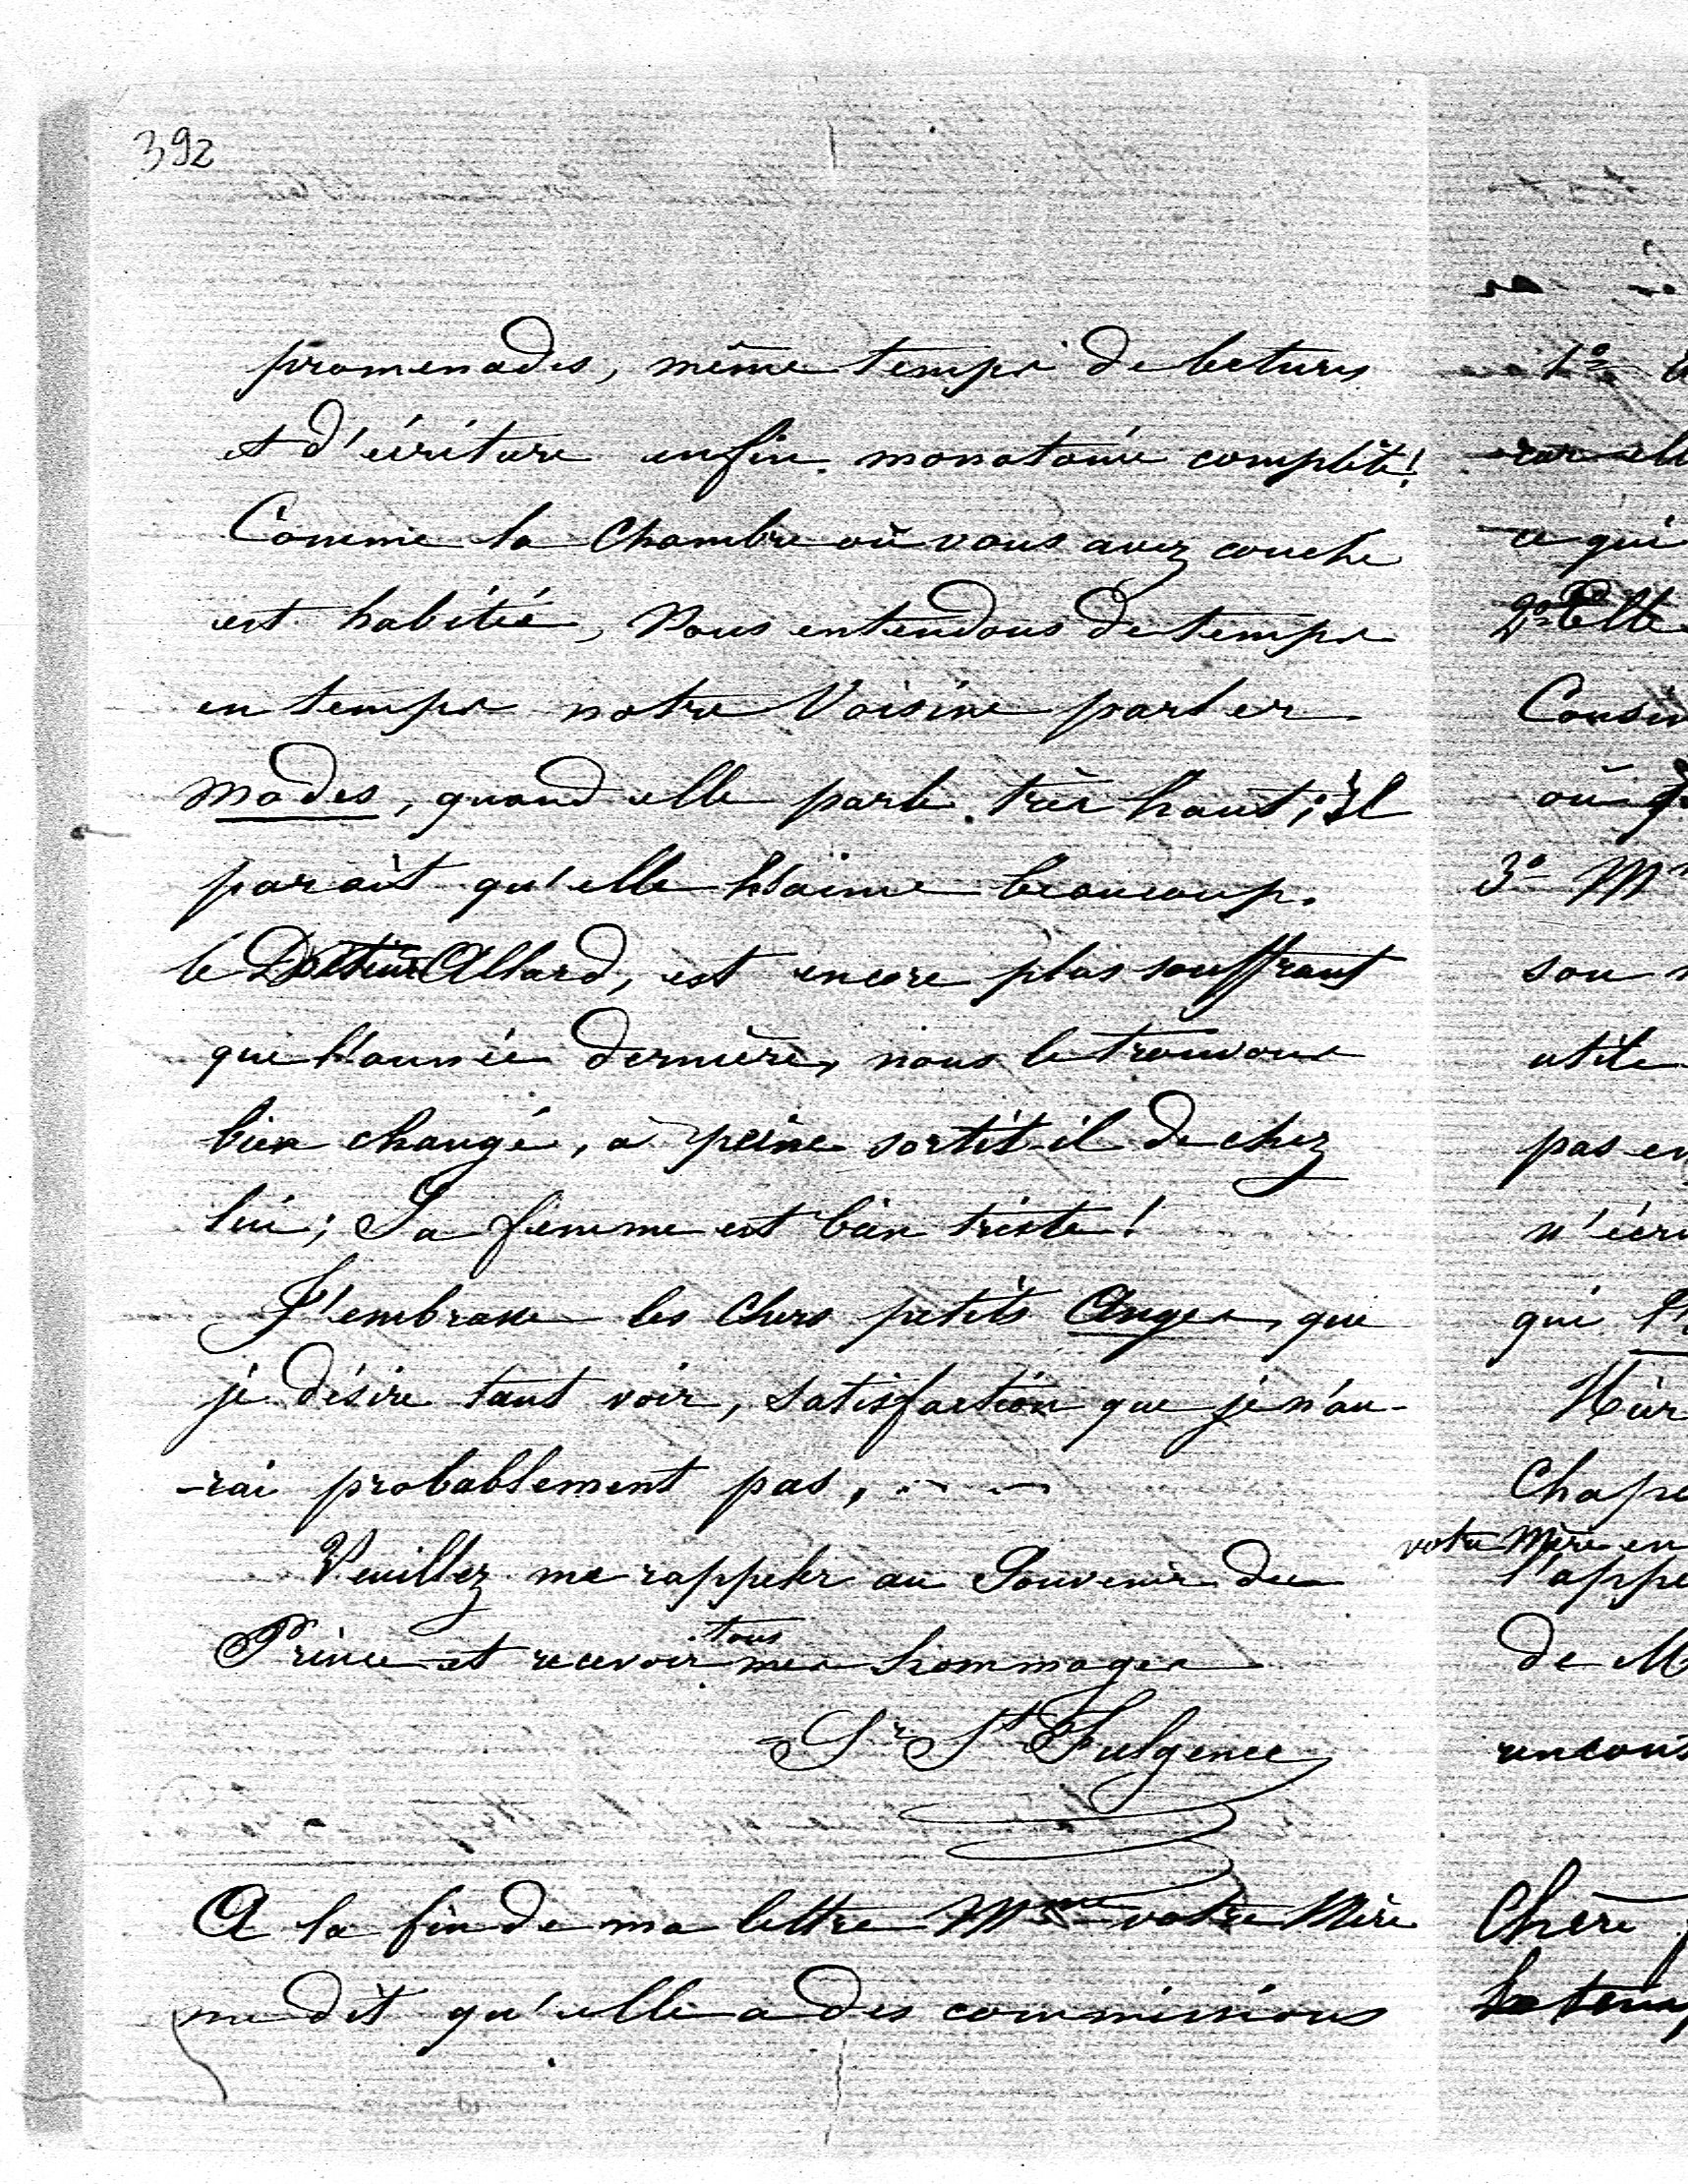 392
promenades, même temps de lectures
et d'écriture enfin monotonie complète!
Comme la Chambre où vous avez couché
est habitée, Nous entendons de temps
en temps notre Voisine parler
modes, quand elle parle très haut; Il
paraît qu'elle l'aime beaucoup.
le Docteur Allard, est encore plus souffrant
que l'année dernière, nous le trouvons
bien changé, à peine sortit-il de chez
lui; Sa femme est bien triste!
J'embrasse les Chers petits Anges, que
je désire tant voir, satisfaction que je n'au-
-rai probablement pas, . . .
Veuillez me rappeler au Souvenir du
Prince et recevoir tous mes hommages
Sr St Fulgence
A la fin de ma lettre Mme votre Mère
me dit qu'elle a des commissions
1º
car elle
ce qui
2º Elle
Cousin
où
3º M
son
utile
pas en
n'écri
qui
Hier
Chape
votre Mère en
l'appe
de M
rencont
Chère